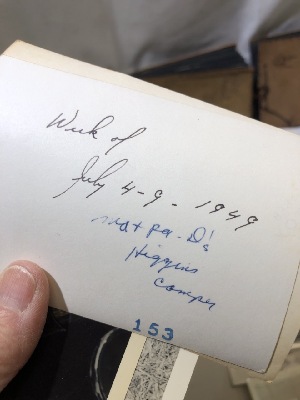 Week of
July 4-9-1949
ma + pa - D's
Higgins
camper
153